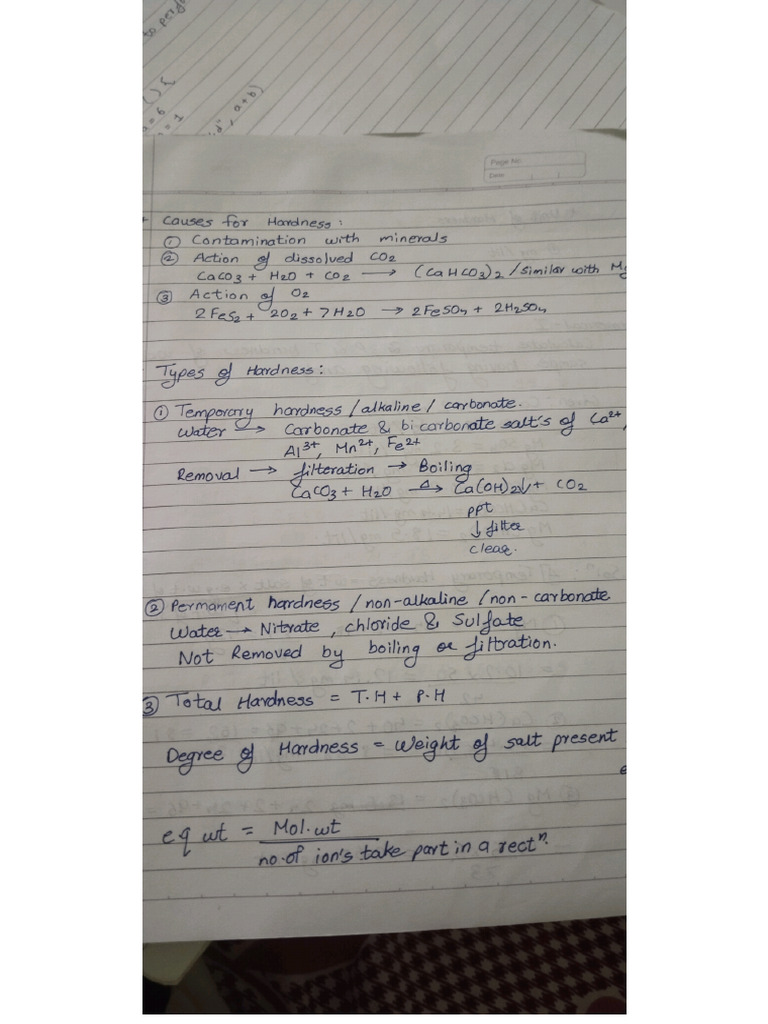 to perfo
() {
a = 6
= 1
d", a+b)
Page No.
Date
Causes for Hardness :
① Contamination with minerals
② Action of dissolved CO2
CaCO3 + H2O + CO2 → (CaHCO3)2 / similar with Mg
③ Action of O2
2FeS2 + 2O2 + 7H2O → 2FeSO4 + 2H2SO4
Types of Hardness :
① Temporary hardness / alkaline / carbonate.
Water → Carbonate & bicarbonate salt's of Ca2+,
Al3+, Mn2+, Fe2+
Removal → filteration → Boiling
CaCO3 + H2O △→ Ca(OH)2↓ + CO2
ppt
↓ filter
clear.
② Permament hardness / non-alkaline / non-carbonate
Water → Nitrate, chloride & Sulfate
Not Removed by boiling or filtration.
③ Total Hardness = T.H + P.H
Degree of Hardness = Weight of salt present
e
eq wt = Mol.wt
no.of ion's take part in a rectn.